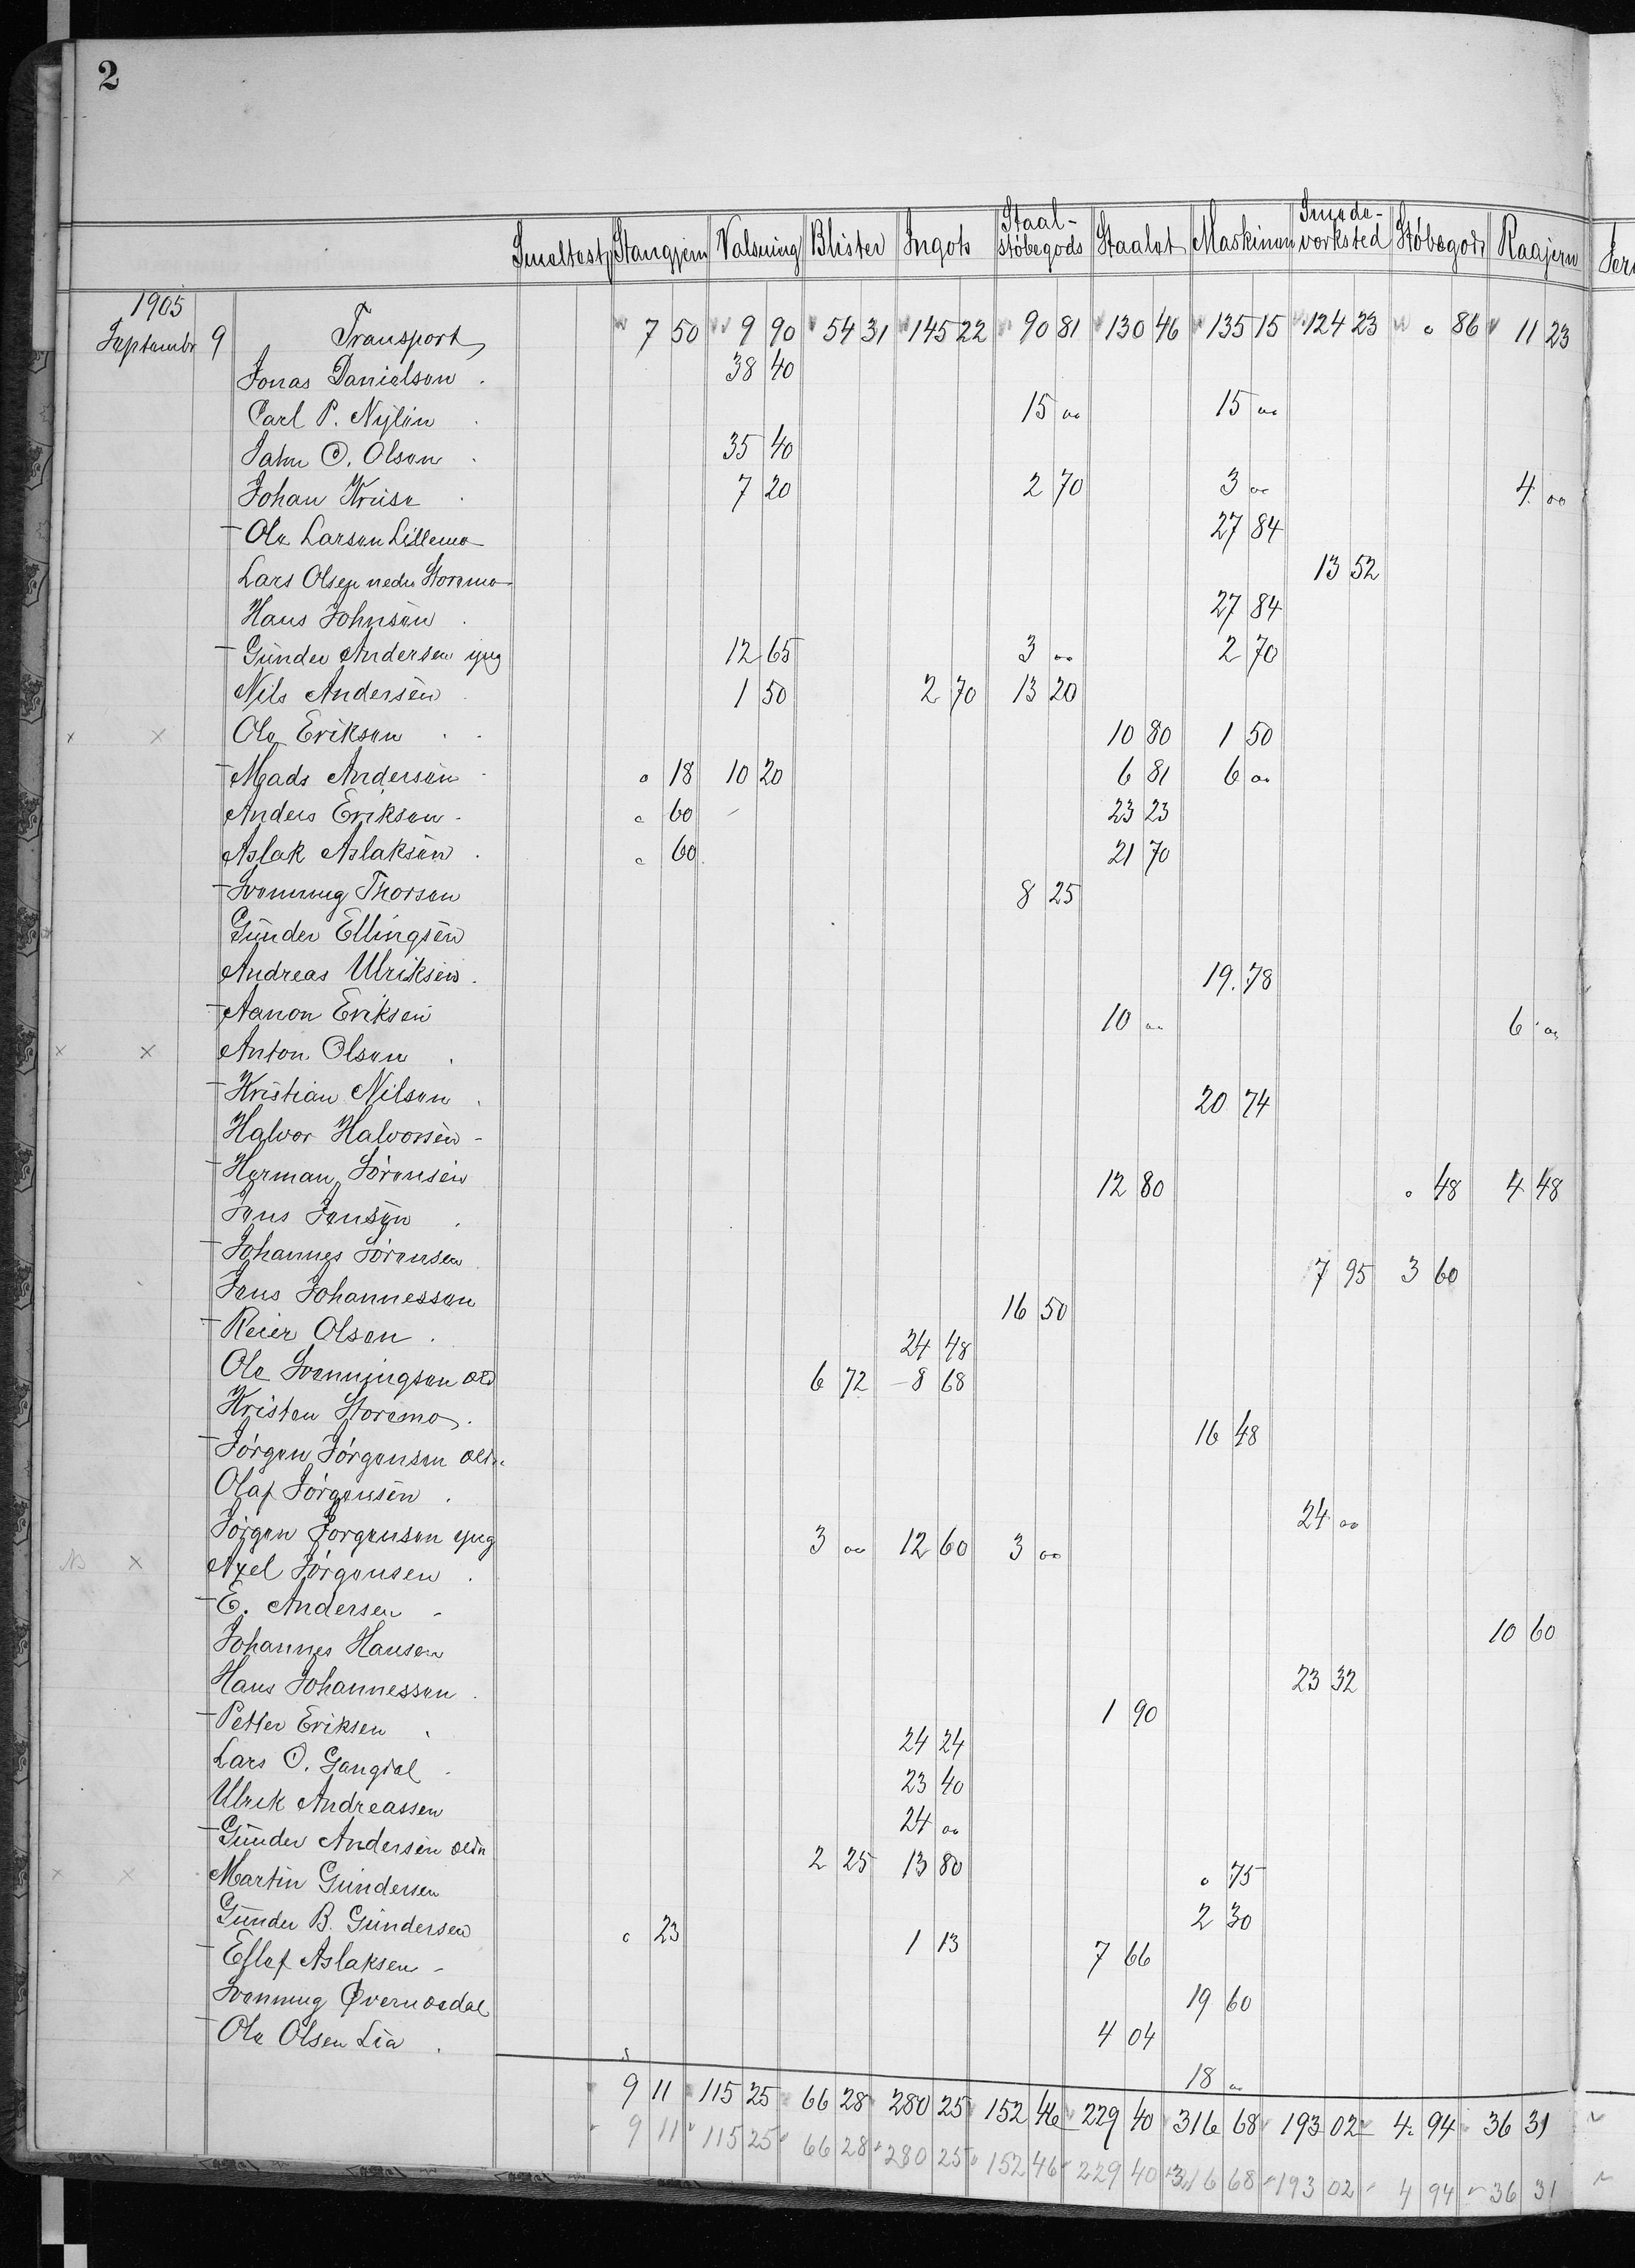 2
Smeltest. Stangjern Valsning Blister Ingots Staal-støbegods Staalet Maskinen Smede-verksted Støbegods Raajern
1905
Septembr 9 Transport 7 50 9 90 54 31 145 22 90 81 130 46 135 15 124 23 " 86 11 23
Jonas Danielsen 38 40
Carl P. Nylén 15 00 15 00
John O. Olsen 35 40
Johan Kruse 7 20 2 70 3 00 4 00
Ole Larsen Lillemo 27 84
Lars Olsen nedre Storemo 13 52
Hans Johnsen 27 84
Gunder Andersen yng 12 65 3 00 2 70
Nils Andersen 1 50 2 70 13 20
x x Ole Eriksen 10 80 1 50
Mads Andersen " 18 10 20 6 81 6 00
Anders Eriksen " 60 23 23
Aslak Aslaksen " 60 21 70
Svenning Thorsen 8 25
Gunder Ellingsen
Andreas Ulriksen 19 78
Aanon Eriksen 10 00 6 00
x x Anton Olsen
Kristian Nilsen 20 74
Halvor Halvorsen
Herman Sørensen 12 80 " 48 4 48
Jens Jensen
Johannes Sørensen 7 95 3 60
Jens Johannessen 16 50
Reier Olsen 24 48
Ole Svenningsen æld 6 72 8 68
Kristen Storemo 16 48
Jørgen Jørgensen æld.
Olaf Jørgensen 24 00
Jørgen Jørgensen yng 3 00 12 60 3 00
NB x Axel Jørgensen
E. Andersen
Johannes Hansen 10 60
Hans Johannessen 23 32
Petter Eriksen 1 90
Lars O. Gangdal 24 24
Ulrik Andreassen 23 40
Gunder Andersen ældr 24 00
x x Martin Gundersen 2 25 13 80 " 75
Gunder B. Gundersen " 23 2 30
Eflef Aslaksen 1 13 7 66
Svenning Øvernesdal 19 60
Ole Olsen Lia 4 04
18 00
9 11 115 25 66 28 280 25 152 46 229 40 316 68 193 02 4 94 36 31
9 11 115 25 66 28 280 25 152 46 229 40 316 68 193 02 4 94 36 31